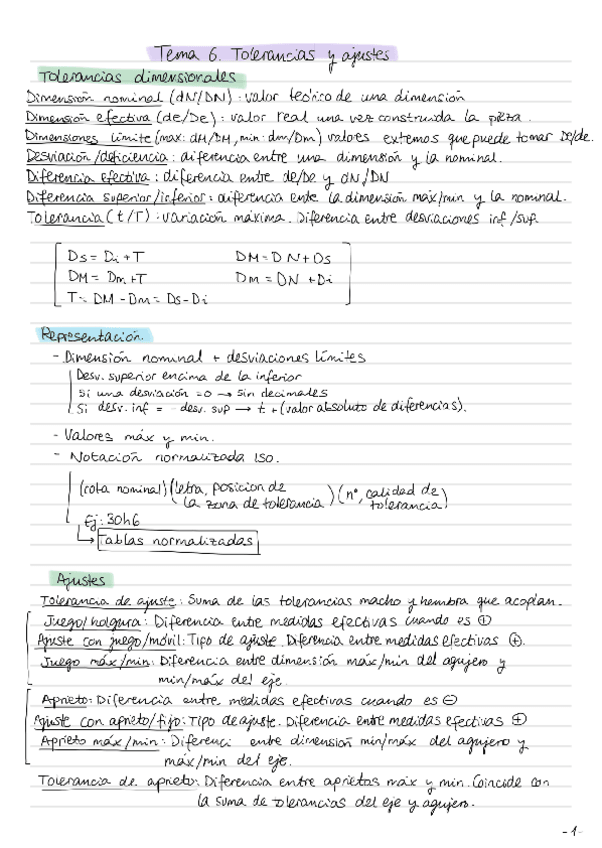 Tema 6. Tolerancias y ajustes
Tolerancias dimensionales
Dimensión nominal (dN/DN): valor teórico de una dimensión
Dimensión efectiva (de/De): valor real una vez construida la pieza.
Dimensiones límite (max: dM/DM, min: dm/Dm) valores extremos que puede tomar De/de.
Desviación/deficiencia: diferencia entre una dimensión y la nominal.
Diferencia efectiva: diferencia entre de/De y dN/DN
Diferencia superior/inferior: diferencia ente la dimensión máx/min y la nominal.
Tolerancia (t/T): variación máxima. Diferencia entre desviaciones inf/sup.
Ds = Di + T DM = DN + Ds
DM = Dm + T Dm = DN + Di
T = DM - Dm = Ds - Di
Representación.
- Dimensión nominal + desviaciones límites
Desv. superior encima de la inferior
Si una desviación = 0 → sin decimales
Si desv. inf = - desv. sup → ± (valor absoluto de diferencias).
- Valores máx y min.
- Notación normalizada ISO.
(cota nominal) (letra, posicion de la zona de tolerancia) (nº, calidad de tolerancia)
Ej: 30h6
→ Tablas normalizadas
Ajustes
Tolerancia de ajuste: Suma de las tolerancias macho y hembra que acoplan.
Juego/holgura: Diferencia entre medidas efectivas cuando es ⊕
Ajuste con juego/móvil: Tipo de ajuste. Diferencia entre medidas efectivas ⊕.
Juego máx/min: Diferencia entre dimensión máx/min del agujero y
min/máx del eje
Aprieto: Diferencia entre medidas efectivas cuando es ⊖
Ajuste con aprieto/fijo: Tipo de ajuste. Diferencia entre medidas efectivas ⊕
Aprieto máx/min: Diferenci entre dimensión min/máx del agujero y
máx/min del eje.
Tolerancia de aprieto: Diferencia entre aprietos máx y min. Coincide con
la suma de tolerancias del eje y agujero.
-1-